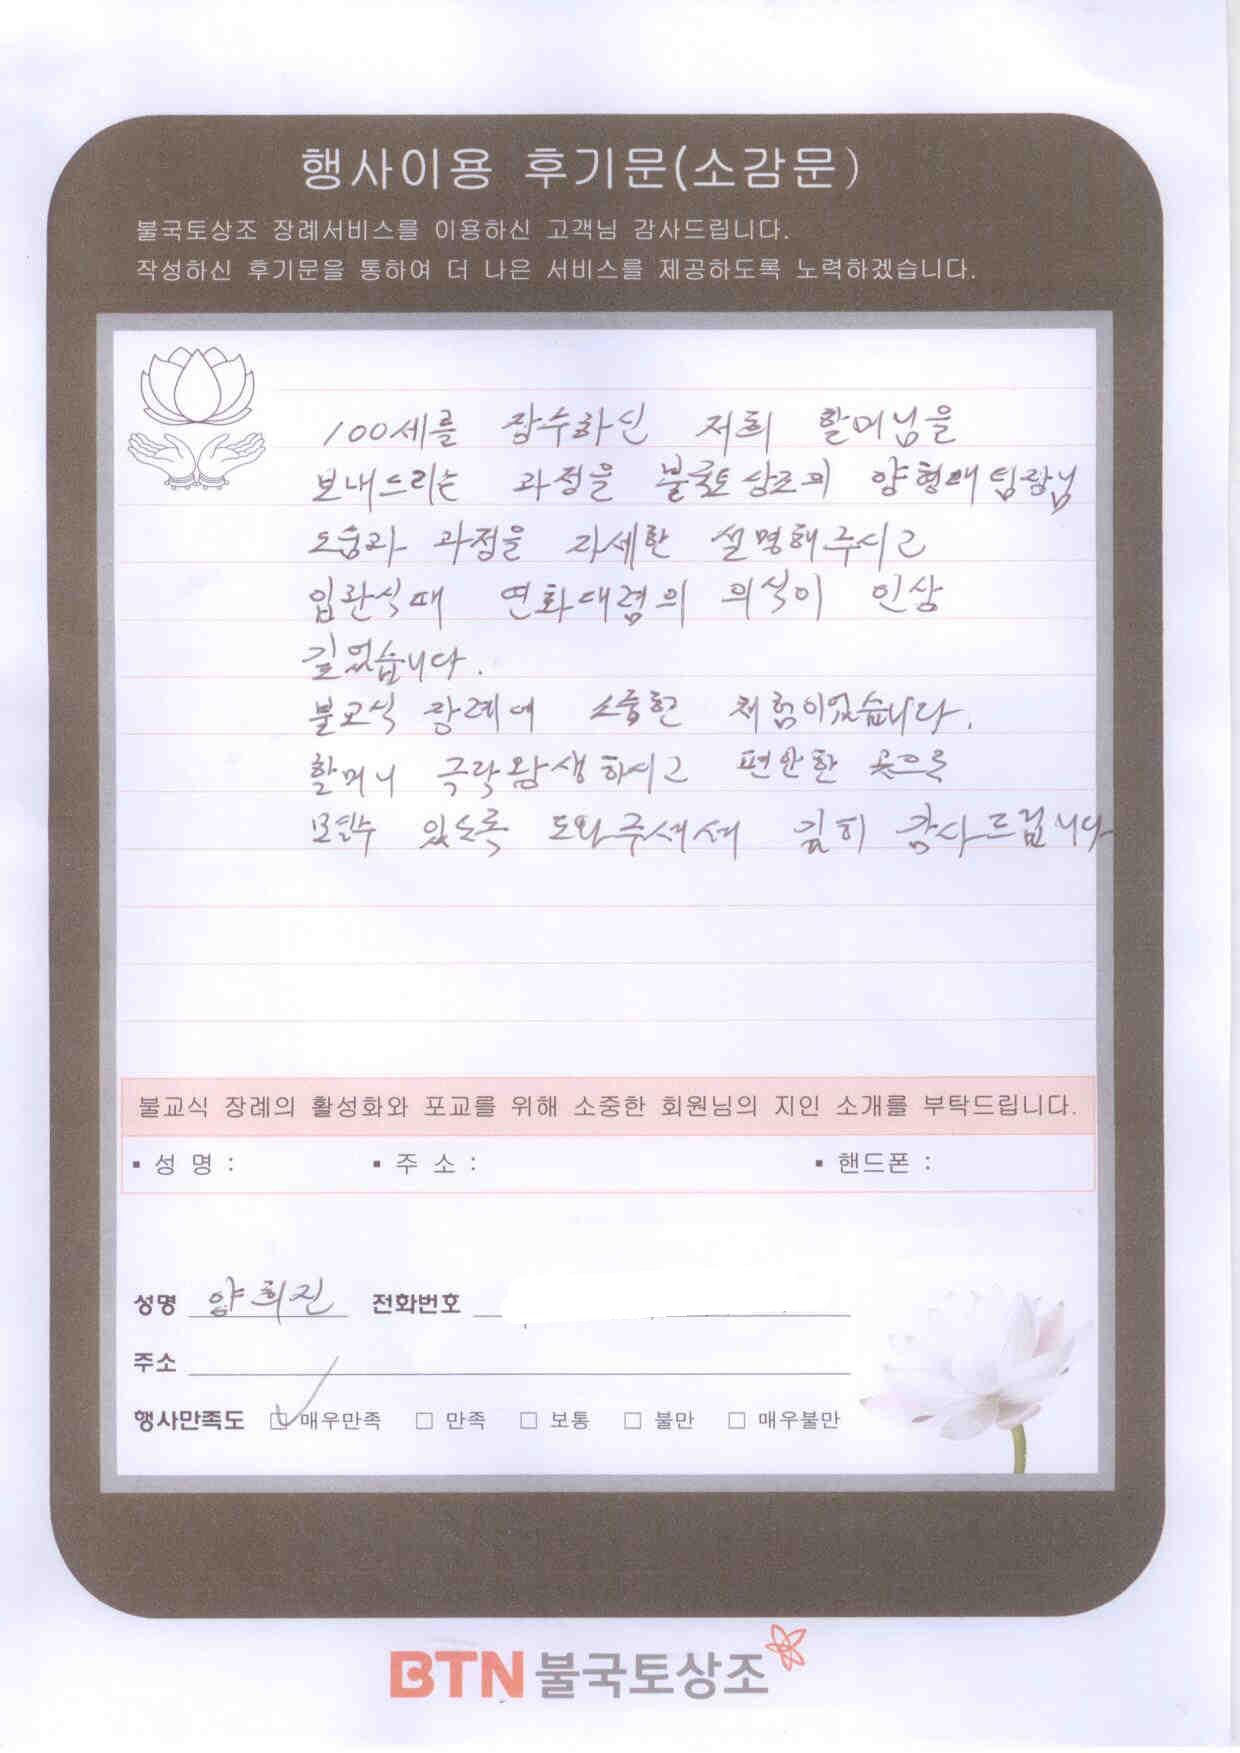 행사이용 후기문(소감문)
불국토상조 장례서비스를 이용하신 고객님 감사드립니다.
작성하신 후기문을 통하여 더 나은 서비스를 제공하도록 노력하겠습니다.
100세를 장수하신 저희 할머님을
보내드리는 과정을 불국토상조의 양형매팀장님
도움과 과정을 자세한 설명해주시고
입관식때 연화대렴의 의식이 인상
깊었습니다.
불교식 장례에 소중한 체험이었습니다.
할머니 극락왕생하시고 편안한 곳으로
모실수 있도록 도와주셔서 깊히 감사드립니다
불교식 장례의 활성화와 포교를 위해 소중한 회원님의 지인 소개를 부탁드립니다.
▪ 성 명 : ▪ 주 소 : ▪ 핸드폰 :
성명 양희진 전화번호
주소
행사만족도 □ 매우만족 □ 만족 □ 보통 □ 불만 □ 매우불만
BTN 불국토상조